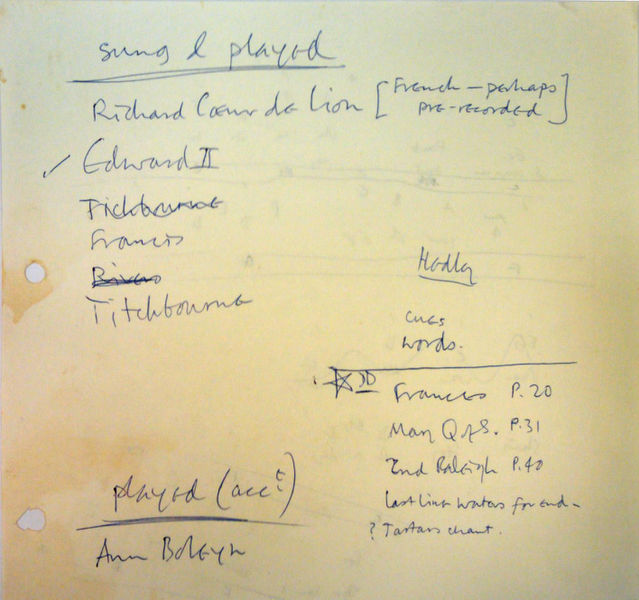 sung & played
Richard Cœur de Lion [French – perhaps
pre-recorded]
✓ Edward II
Tichbourne
Francis
Rivers
Titchbourne
played (acc:t)
Ann Boleyn
Hadley
cues
words.
Frances P.20
Mary Q of S. P.31
2nd Raleigh P.40
last line waters for end –
? Tartars chant.